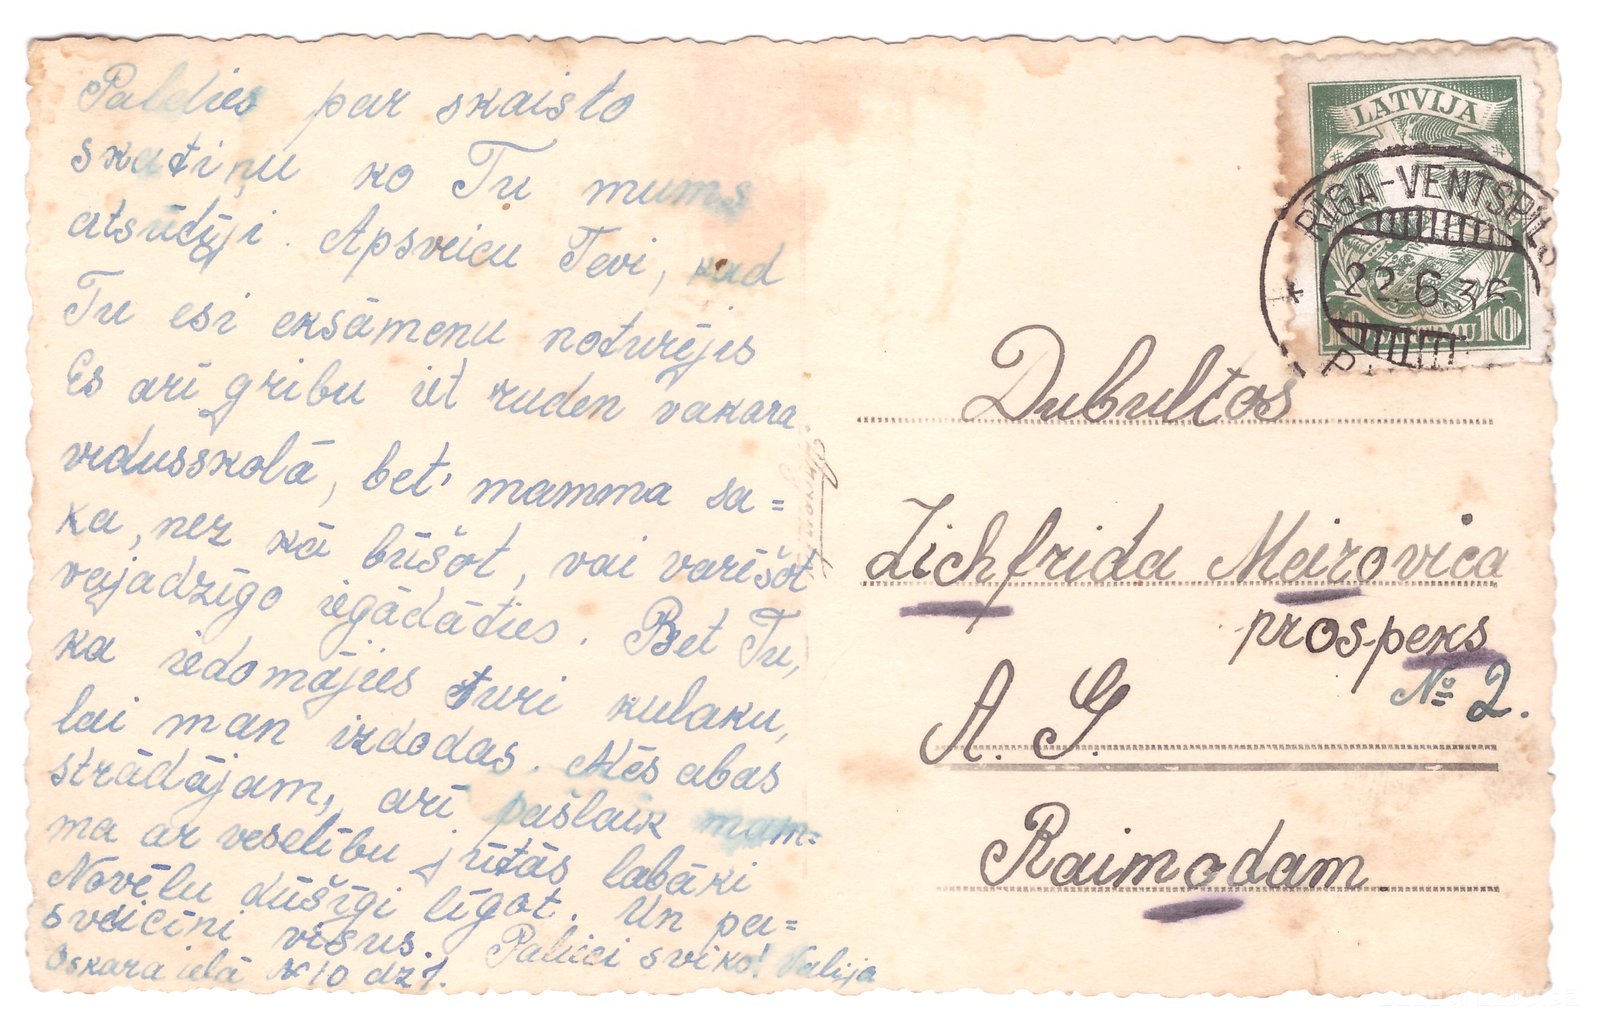 Paldies par skaisto
skatiņu ko Tu mums
atsūtīji. Apsveicu Tevi, kad
Tu esi eksāmenu noturējis
Es arī gribu iet ruden vakara
vidusskolā, bet' mamma sa=
ka, nez kā būšot, vai varēšot
vajadzīgo iegādāties. Bet Tu,
ka iedomājies turi kulaku,
lai man izdodas. Mēs abas
strādājam, arī pašlaik mam=
ma ar veselību jūtās labāki
Novēlu dūšīgi līgot. Un pa=
sveicini visus. Paliec sviks! Valija
Oskara ielā № 10 dz 7.
LATVIJA
RIGA-VENTSPILS
22.6.36
10 10
P.
Dubultos
Zichfrida Meirovica
prospeks
№ 2.
A. G.
Raimodam